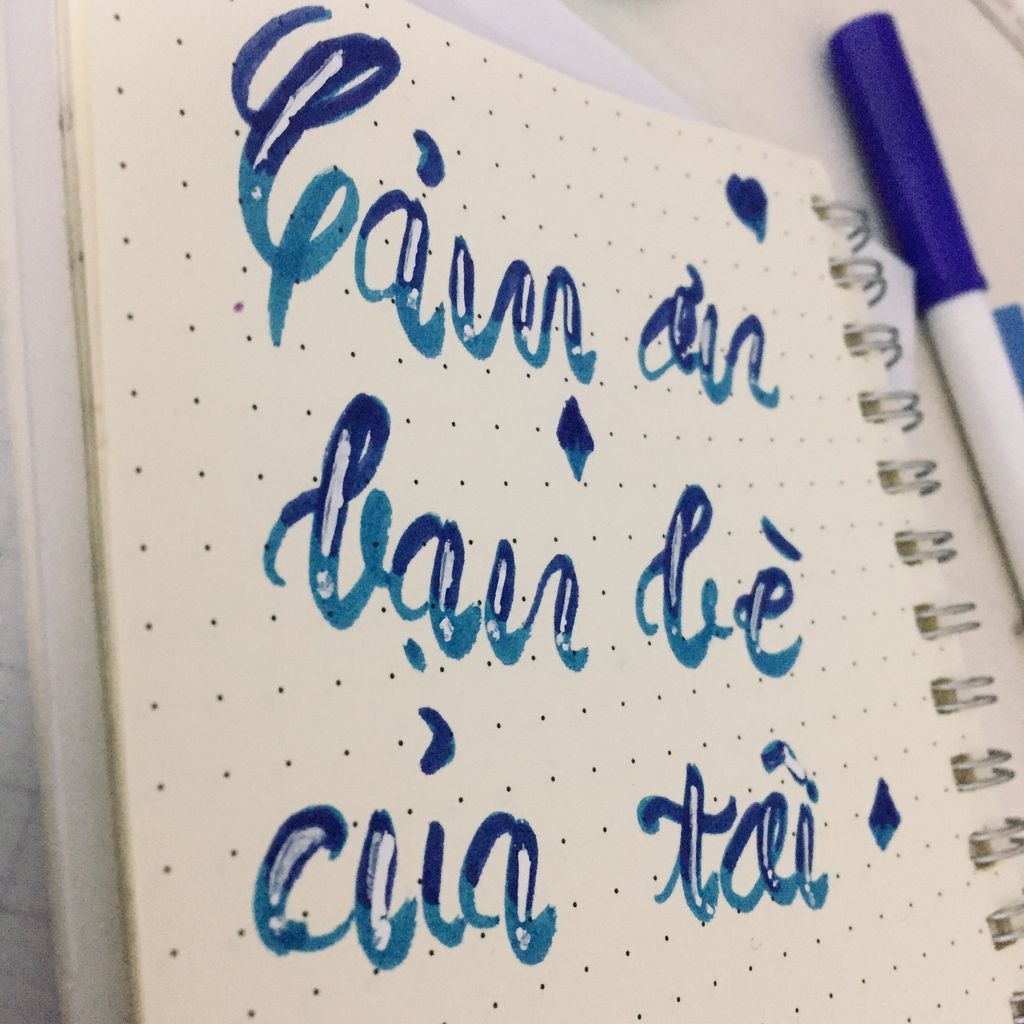 Cảm ơn
bạn bè
của tôi